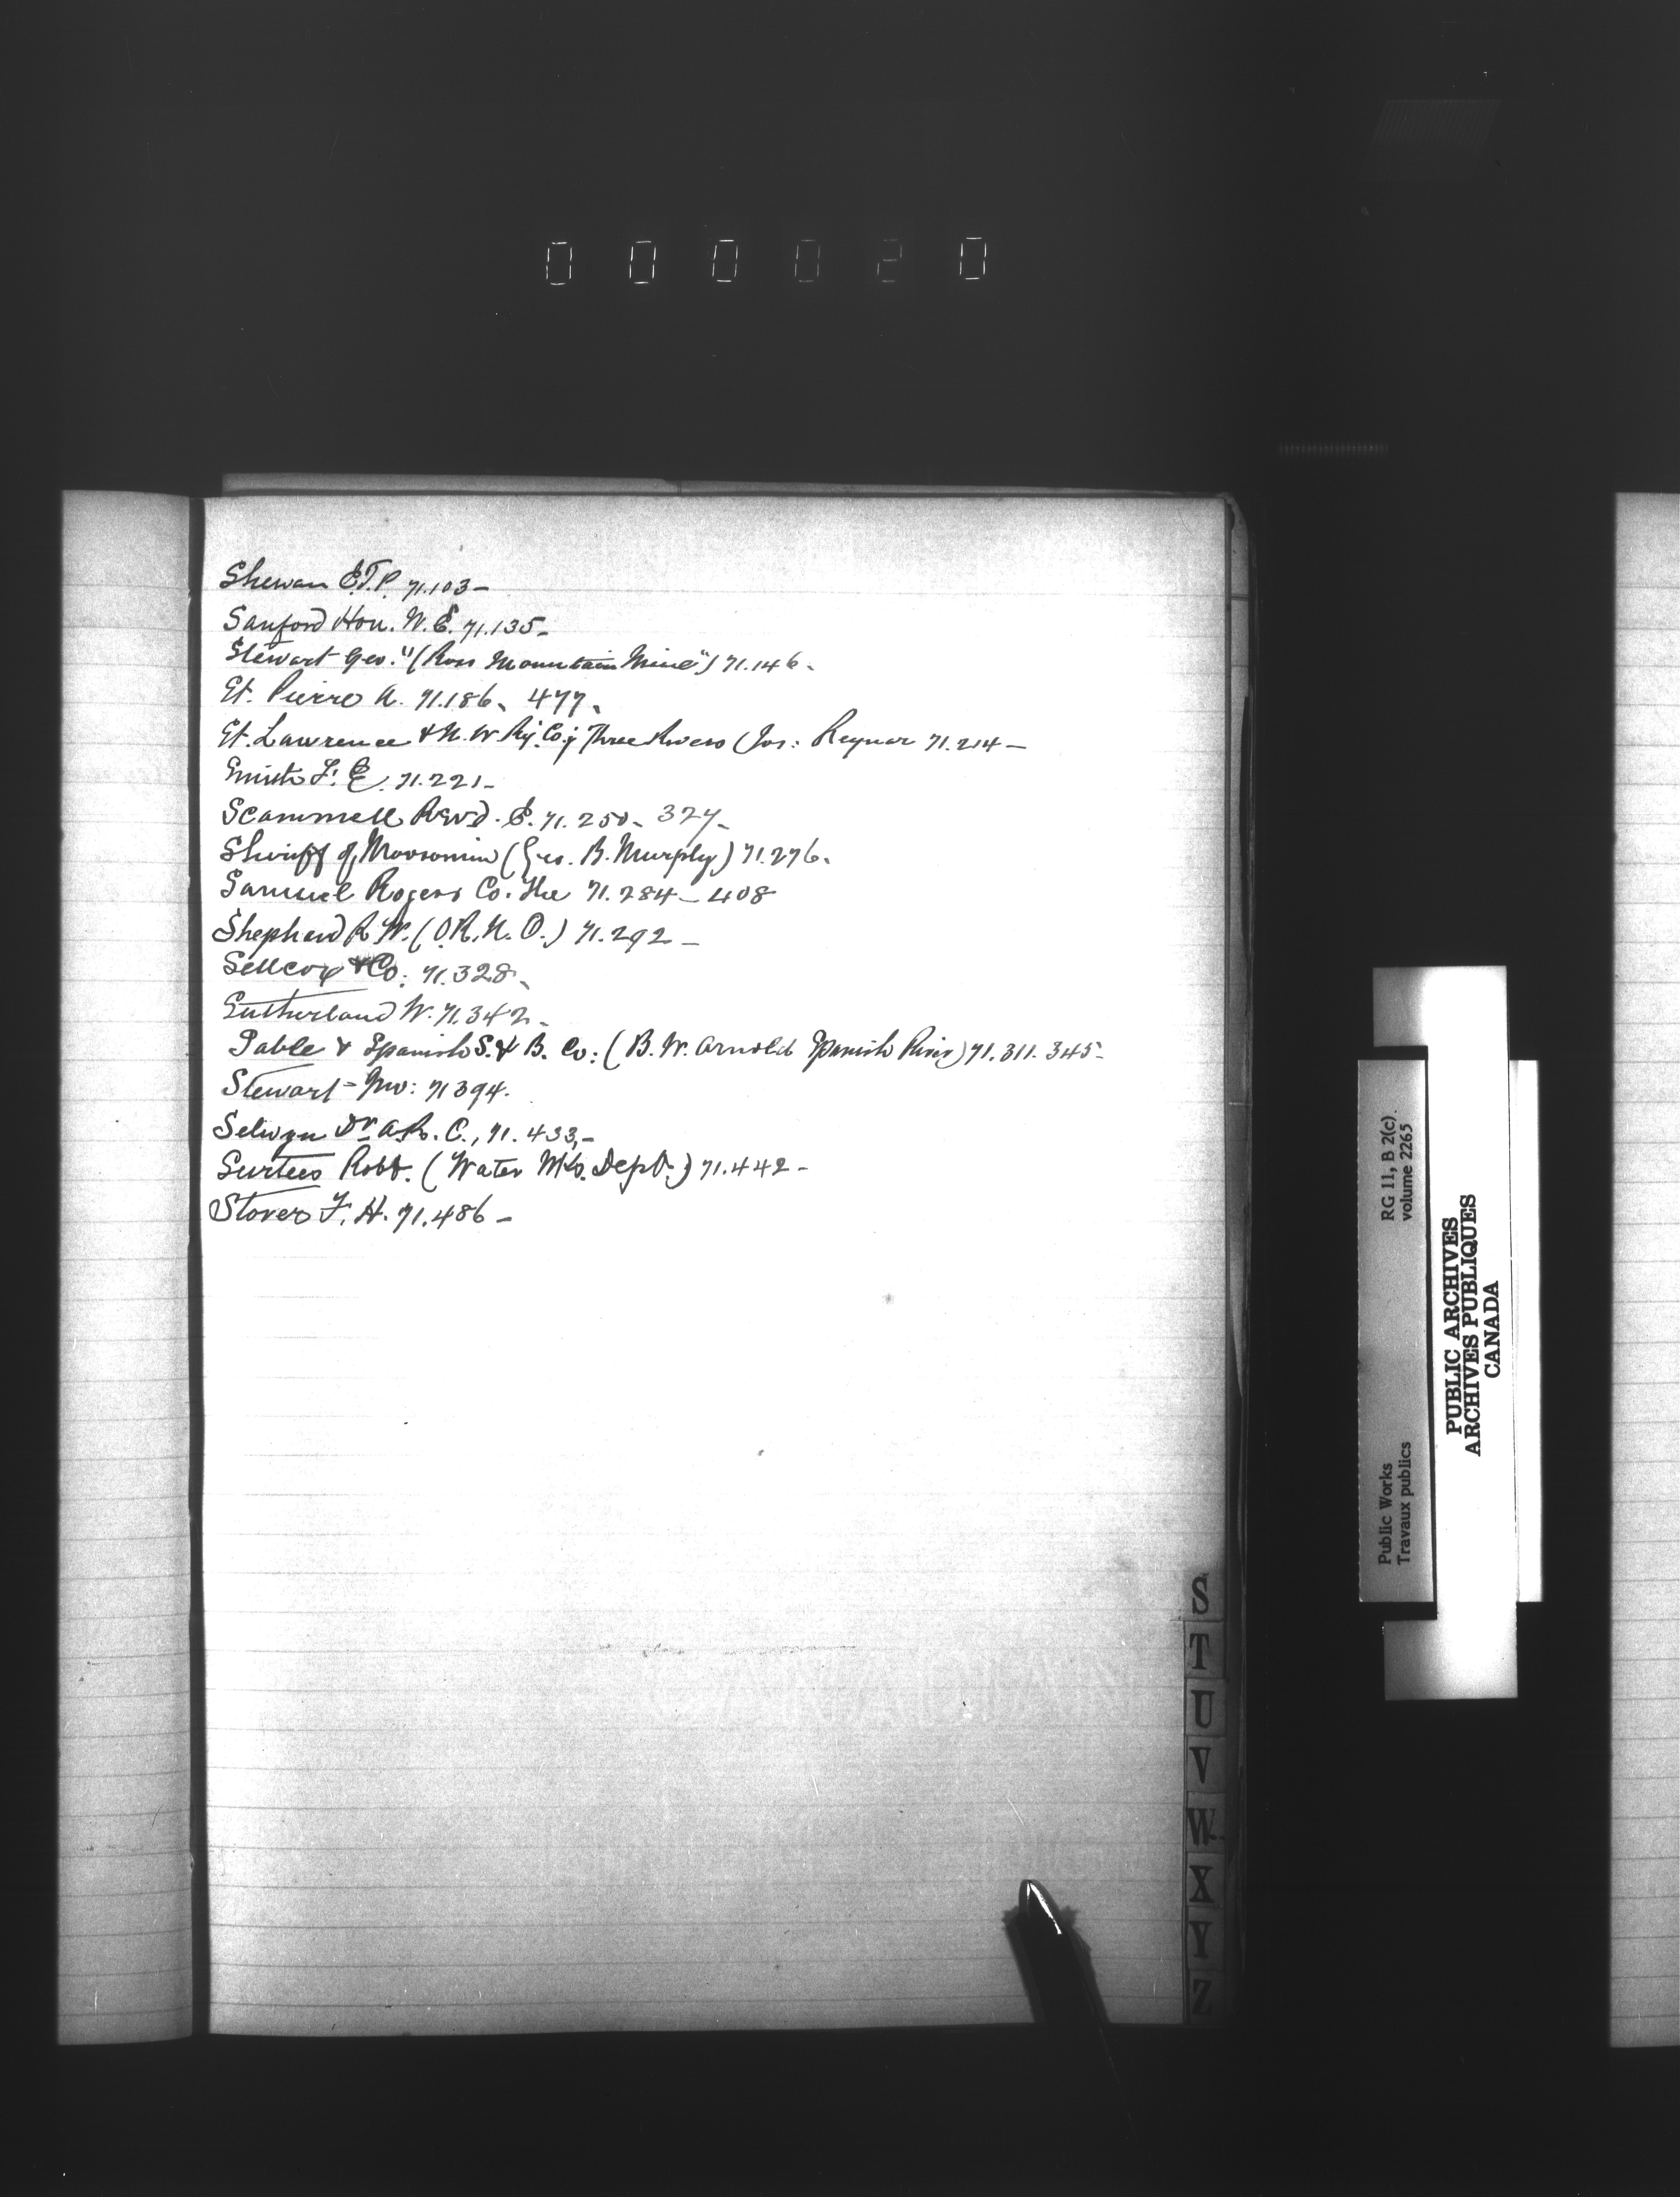 000020
Shewan E.T.P. 71.103-
Sanford Hon. W.E. 71.135-
Stewart Geo. "(Ross Mountain Mine") 71.146-
St. Pierre A. 71.186- 477-
St. Lawrence & N.W Ry. Co; Three Rivers (Jos: Reynar 71.214-
Smith F. E. 71.221-
Scammell Revd. E. 71.250- 327-
Sheriff of Moosomin (Geo. B. Murphy) 71.276-
Samuel Rogers Co. The 71.284- 408
Shephard R W. (O.R.N.O.) 71.292-
Sellcox & Co: 71.328-
Sutherland W. 71.342-
Sable & Spanish S. & B. Co: (B.W. Arnold Spanish River) 71.311.345-
Stewart - Jno: 71 394.
Selwyn Dr A.R.C., 71.433,-
Surtees Robt. (Water Wks. Dept.) 71.442-
Stover F. H. 71.486-
S
T
U
V
W
X
Y
Z
Public Works
Travaux publics
RG 11, B 2(c).
volume 2265
PUBLIC ARCHIVES
ARCHIVES PUBLIQUES
CANADA